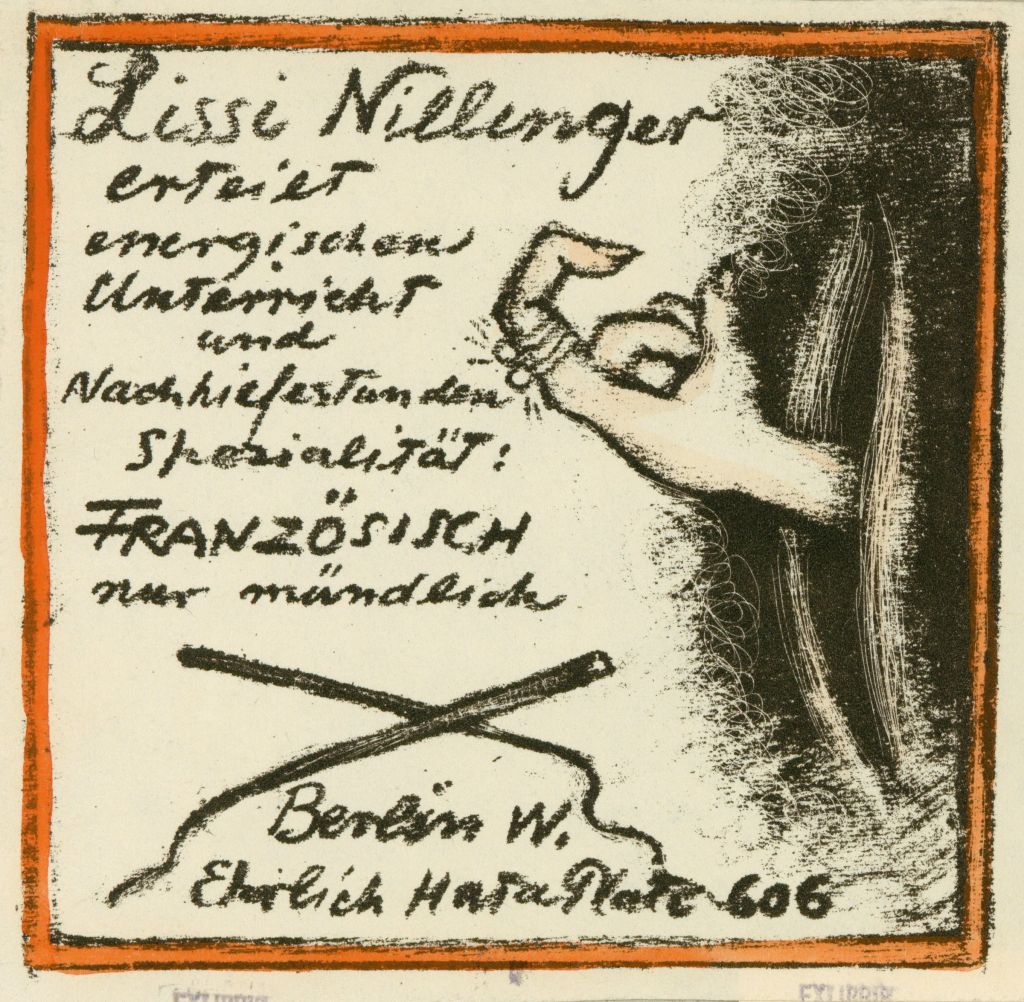 Lissi Nillinger
erteiet
energischen
Unterricht
und
Nachhiefestunden
Spezialität:
FRANZÖSISCH
nur mündlich
Berlin W.
Ehrlich Hata Platz 606
EXLIBRIS
EXLIBRIS